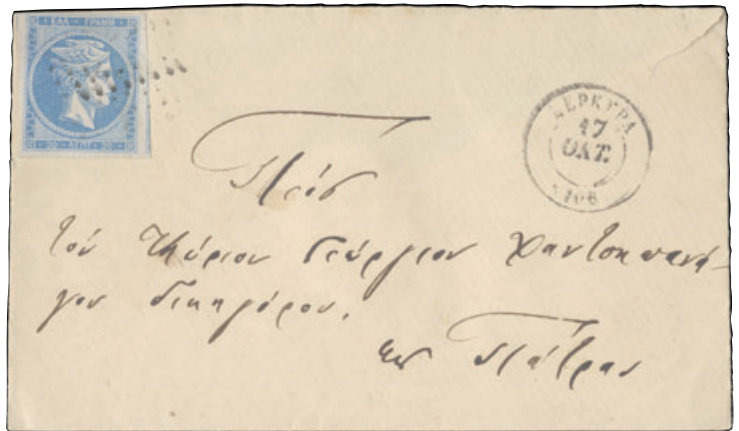 ΕΛΛ ΓΡΑΜΜ
20 ΛΕΠΤ 20
ΚΕΡΚΥΡΑ
17
ΟΚΤ.
(106
Πρὸς
τὸν Κύριον Γεώργιον Χαντσαπανά-
γον δικηγόρον.
εἰς Πάτρας